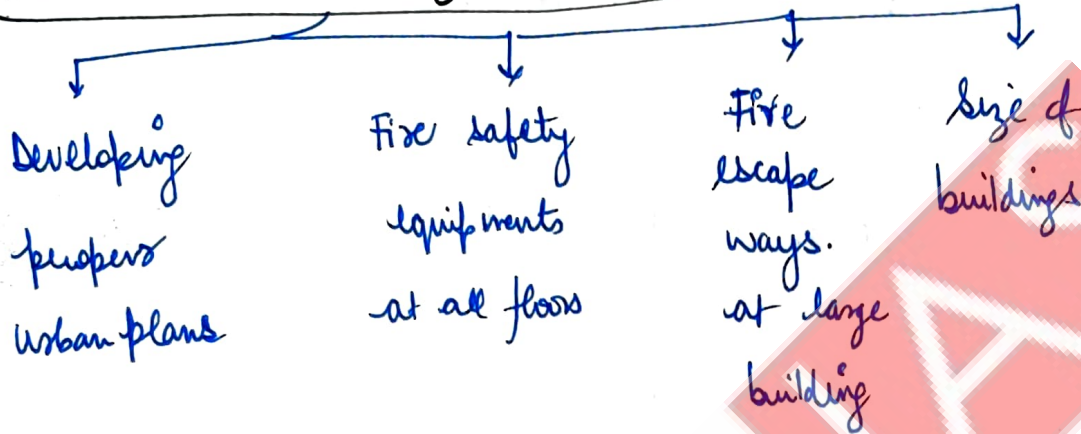 Developing
proper
urban plans
Fire safety
equipments
at all floors
Fire
escape
ways.
at large
building
Size of
buildings